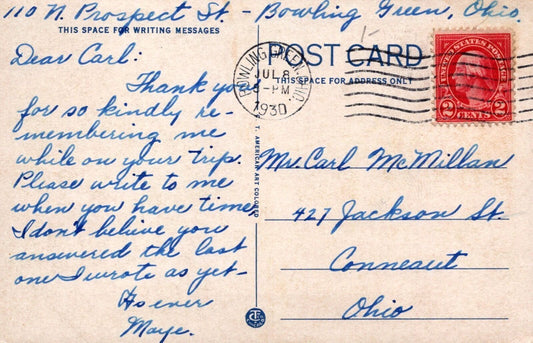 110 N. Prospect St. - Bowling Green, Ohio.
THIS SPACE FOR WRITING MESSAGES
Dear Carl:
Thank you
for so kindly re-
membering me
while on your trip.
Please write to me
when you have time,
I dont beliive you
answered the last
one I wrote as yet-
As ever
Maye.
POST CARD
THIS SPACE FOR ADDRESS ONLY
BOWLING GREEN, OHIO.
JUL 8
PM
1930
UNITED STATES POSTAGE
2 CENTS 2
Mr. Carl McMillan
427 Jackson St.
Conneaut
Ohio
C. T. AMERICAN ART COLORED